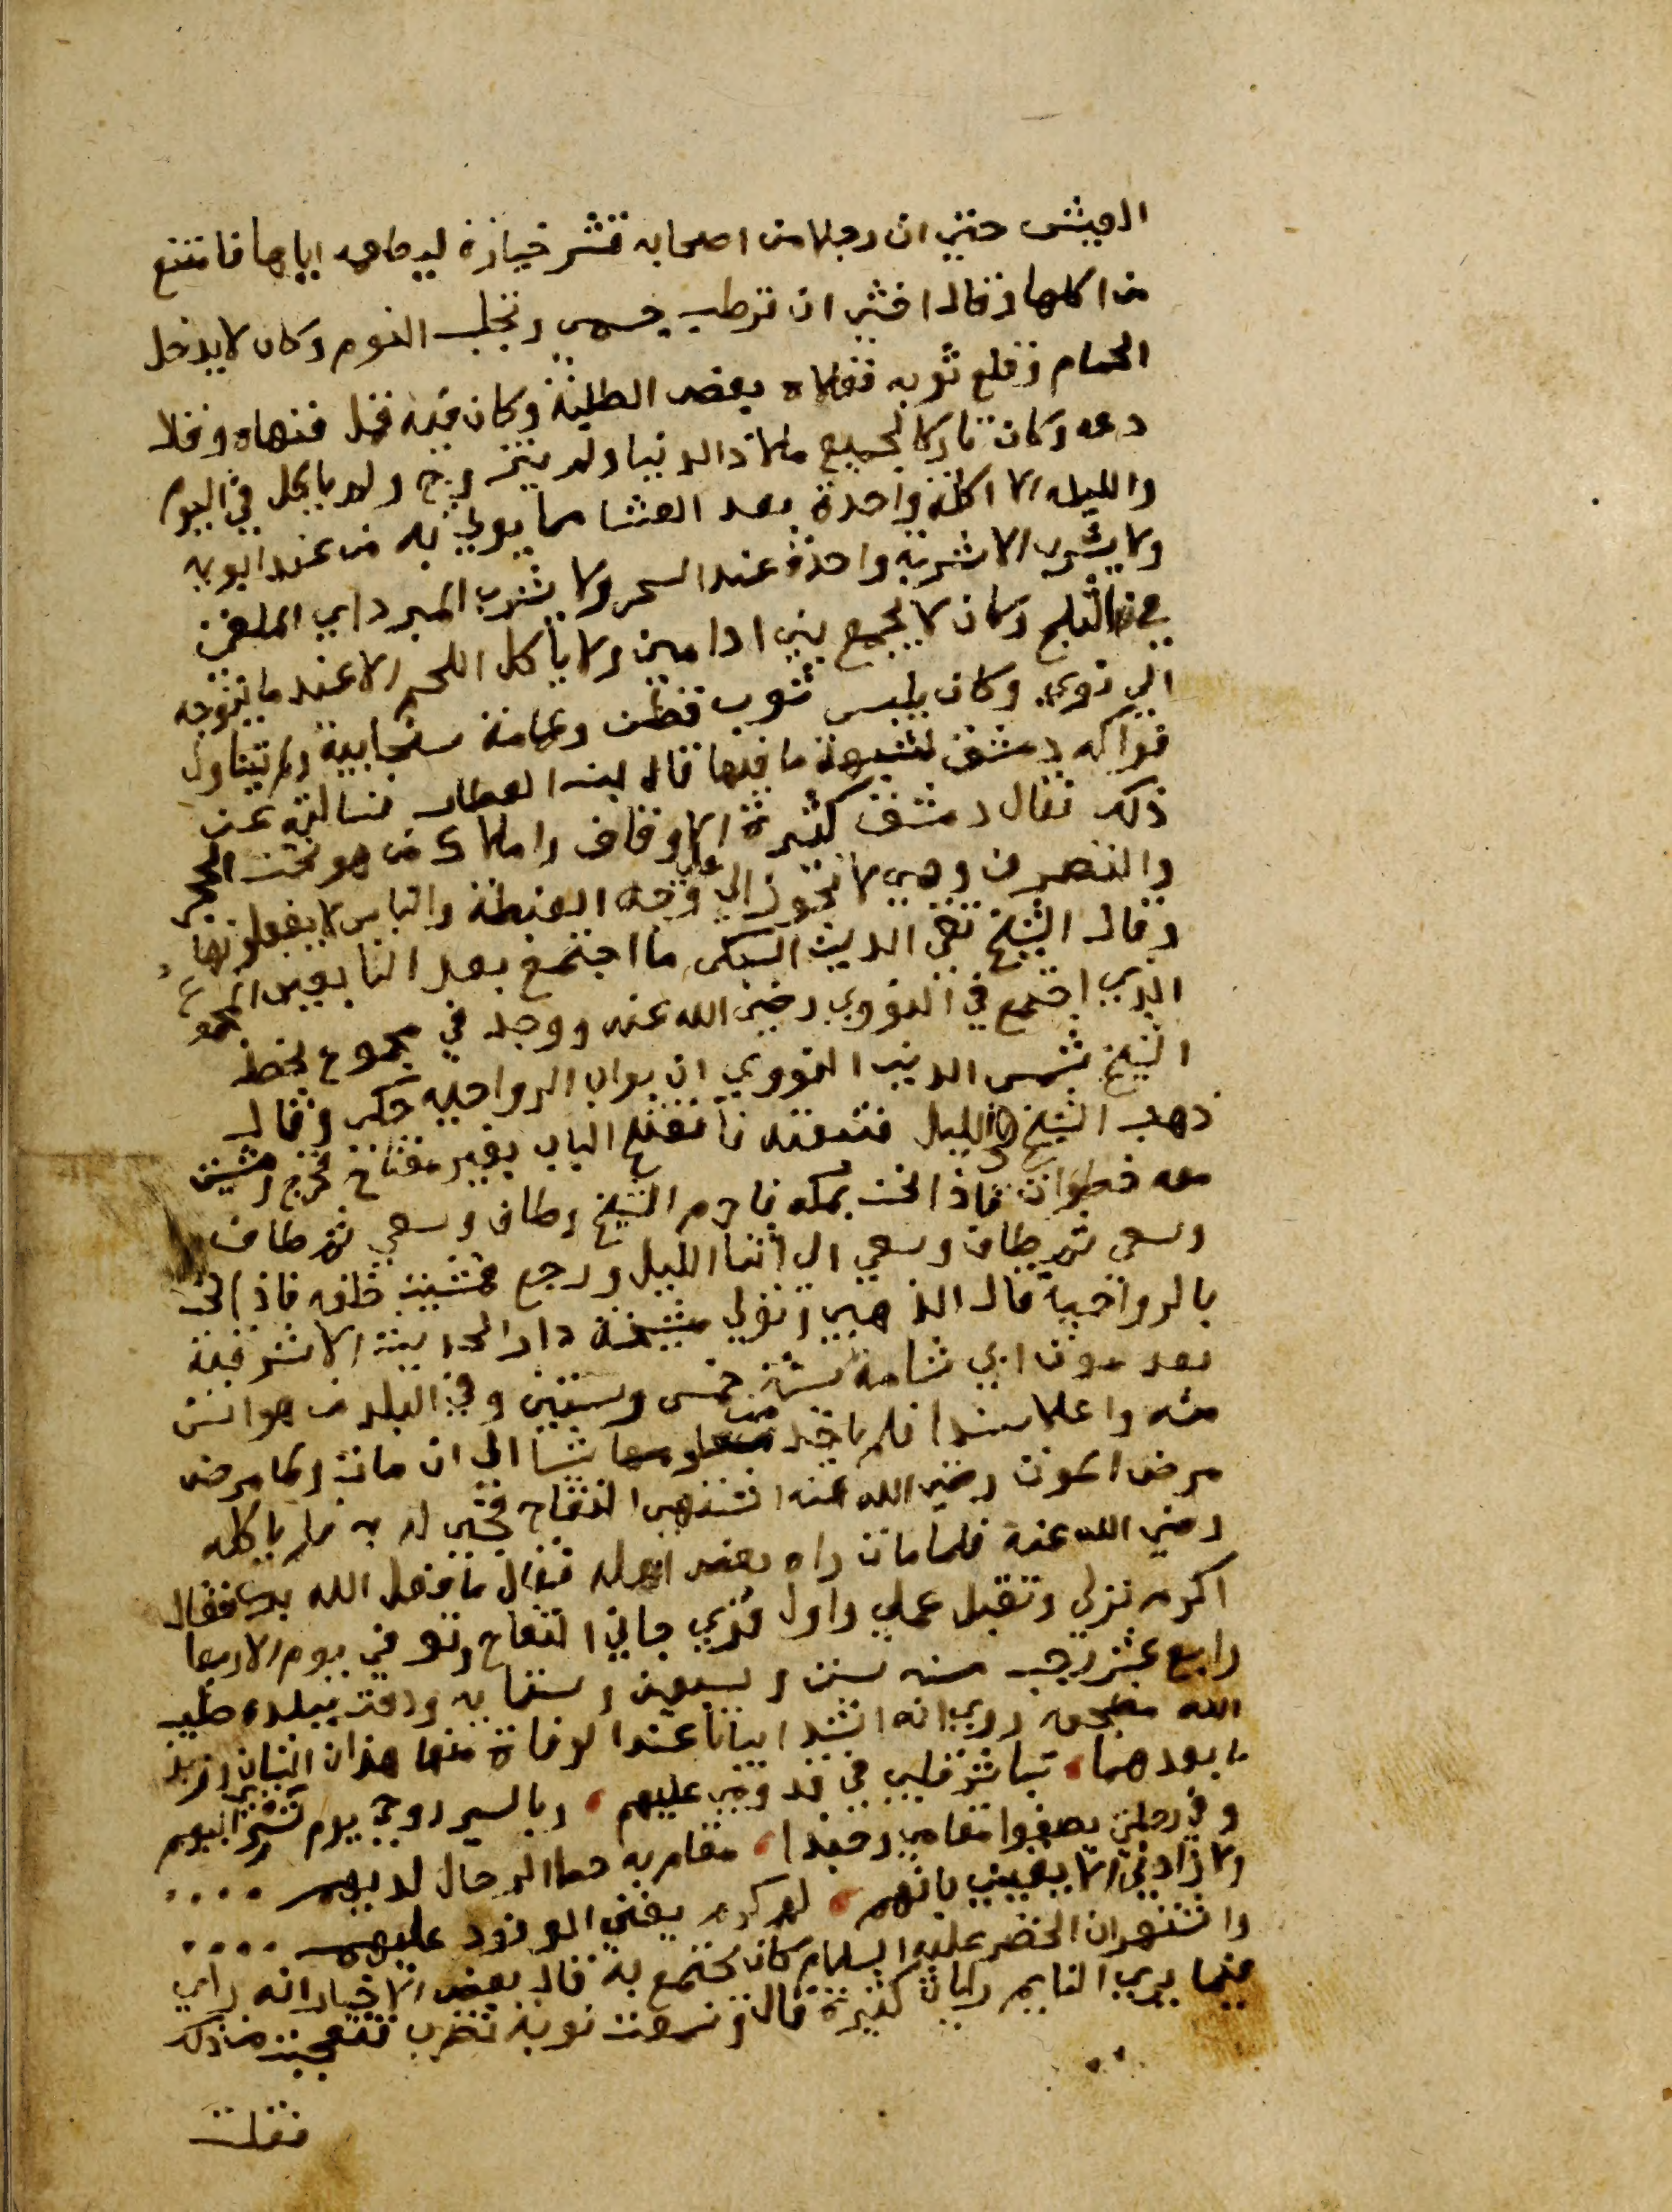 العيش حتي ان رجلا من اصحابه قشر خيارة ليطعمه اياها فامتنع
من اكلها وقال اخشي ان ترطب جسمي وتجلب النوم وكان لا يدخل
الحمام وقلع ثوبه ففلاه بعض الطلبة وكان فيه قمل فنهاه وقال
دعه وكان تاركا لجميع ملاذ الدنيا ولم يتزوج ولم ياكل في اليوم
والليله الا اكلة واحدة بعد العشا مما يوتي به من عند ابويه
ولا يشرب الا شربة واحدة عند السحر ولا يشرب المبرد اي الملقى
فيه الثلج وكان لا يجمع بين ادامين ولا ياكل اللحم الا عند ما يتوجه
الي نوي وكان يلبس ثوب قطن وعمامة سنجابية ولا يتناول
فواكه دمشق لشبهة ما فيها قال ابن العطار فسالته عن
ذلك فقال دمشق كثيرة الاوقاف واملاك من هو تحت الحجر
والتصرف وهي لا تجوز الا علي وجه الغبطة والناس لا يفعلونها
وقال الشيخ تقي الدين السبكي ما اجتمع بعد التابعين المجموع
الذي اجتمع في النووي رضي الله عنه ووجد في مجموع بخط
الشيخ شمس الدين النووي ان بواب الرواحيه حكي وقال
ذهب الشيخ في الليل فتبعته فانفتح الباب بغير مفتاح فخرج ومشيت
معه خطوات فاذا نحن بمكه فاحرم الشيخ وطاف وسعي ثم طاف
وسعى ثم طاف وسعي الى اثنا الليل ورجع فمشيت خلفه فاذا نحن
بالرواحية قال الذهبي وتولي مشيخة دار الحديث الاشرفية
بعد موت ابي شامة سنة خمس وستين وفي البلد من هو اسن
منه واعلا سندا فلم ياخذ من معلومها شيا الي ان مات ولما مرض
مرض الموت رضي الله عنه اشتهى التفاح فجي له به فلم ياكله
رضي الله عنه فلما مات راه بعض اهله فقال ما فعل الله بك فقال
اكرم نزلي وتقبل عملي واول قري جاني التفاح وتوفي يوم الاربعا
رابع عشر رجب سنه ست وسبعين وستمايه ودفن ببلده طيب
الله مضجعه وروي انه انشد ابياتا عند الوفاة منها هذان البيتان
ما بعدهما، تباشر قلبي في قدومي عليهم، وبالسير روحي يوم تسري اليهم
وفي رحلتي يصفوا مقامي وحبذا، مقام به حط الرحال لديهم ....
ولا زاد لي الا يقيني بانهم، لهم كرم يغني الوفود عليهم ....
واشتهر ان الخضر عليه السلام كان يجتمع به قال بعض الاخيار انه راي
فيما يري النايم رايات كثيرة قال وسمعت نوبة تضرب فتعجبت من ذلك
فقلت